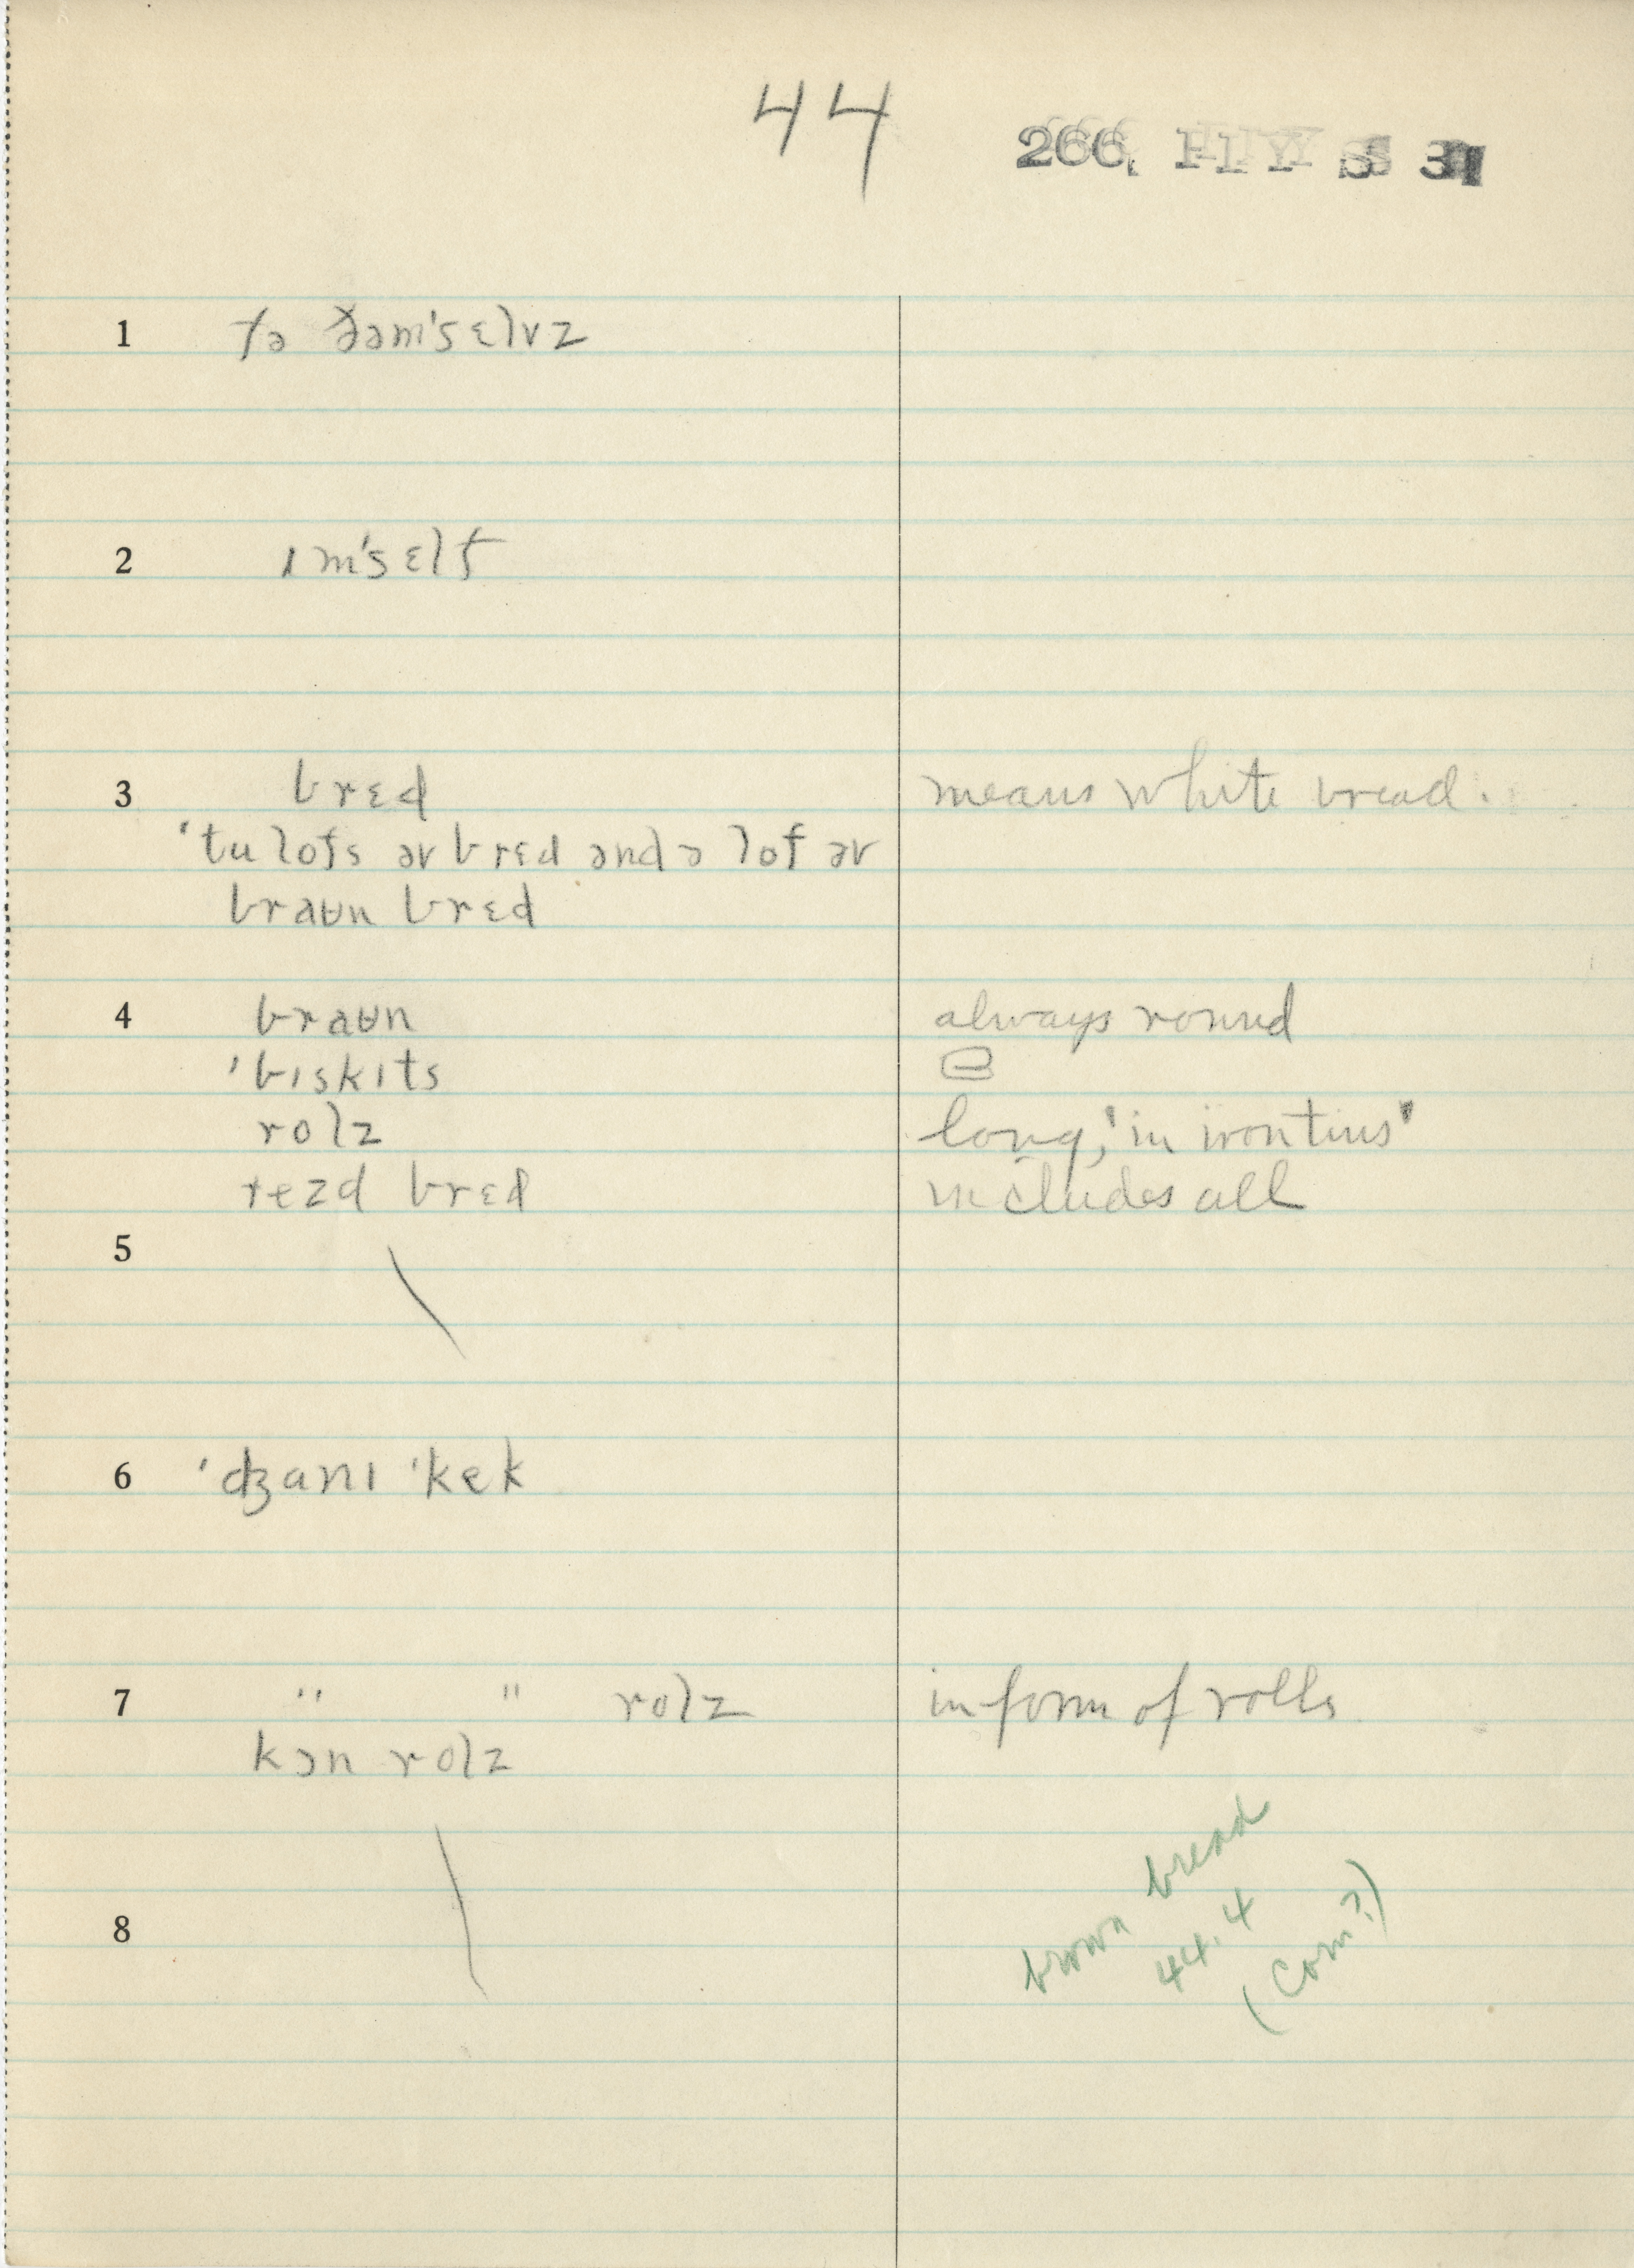 44
266.
1 tə ðəm'sɛlvz
2 ɪm'sɛlf
3 brɛd means white bread.
'tu lofs əv brɛd ənd ə lof əv
braʉn brɛd
4 braʉn always round
'bɪskɪts
rolz long, 'in iron tins'
rezd brɛd includes all
5
6 'ʤanɪ 'kek
7 " " rolz in form of rolls
kɔn rolz
8
brown bread
44.4
(Corn?)